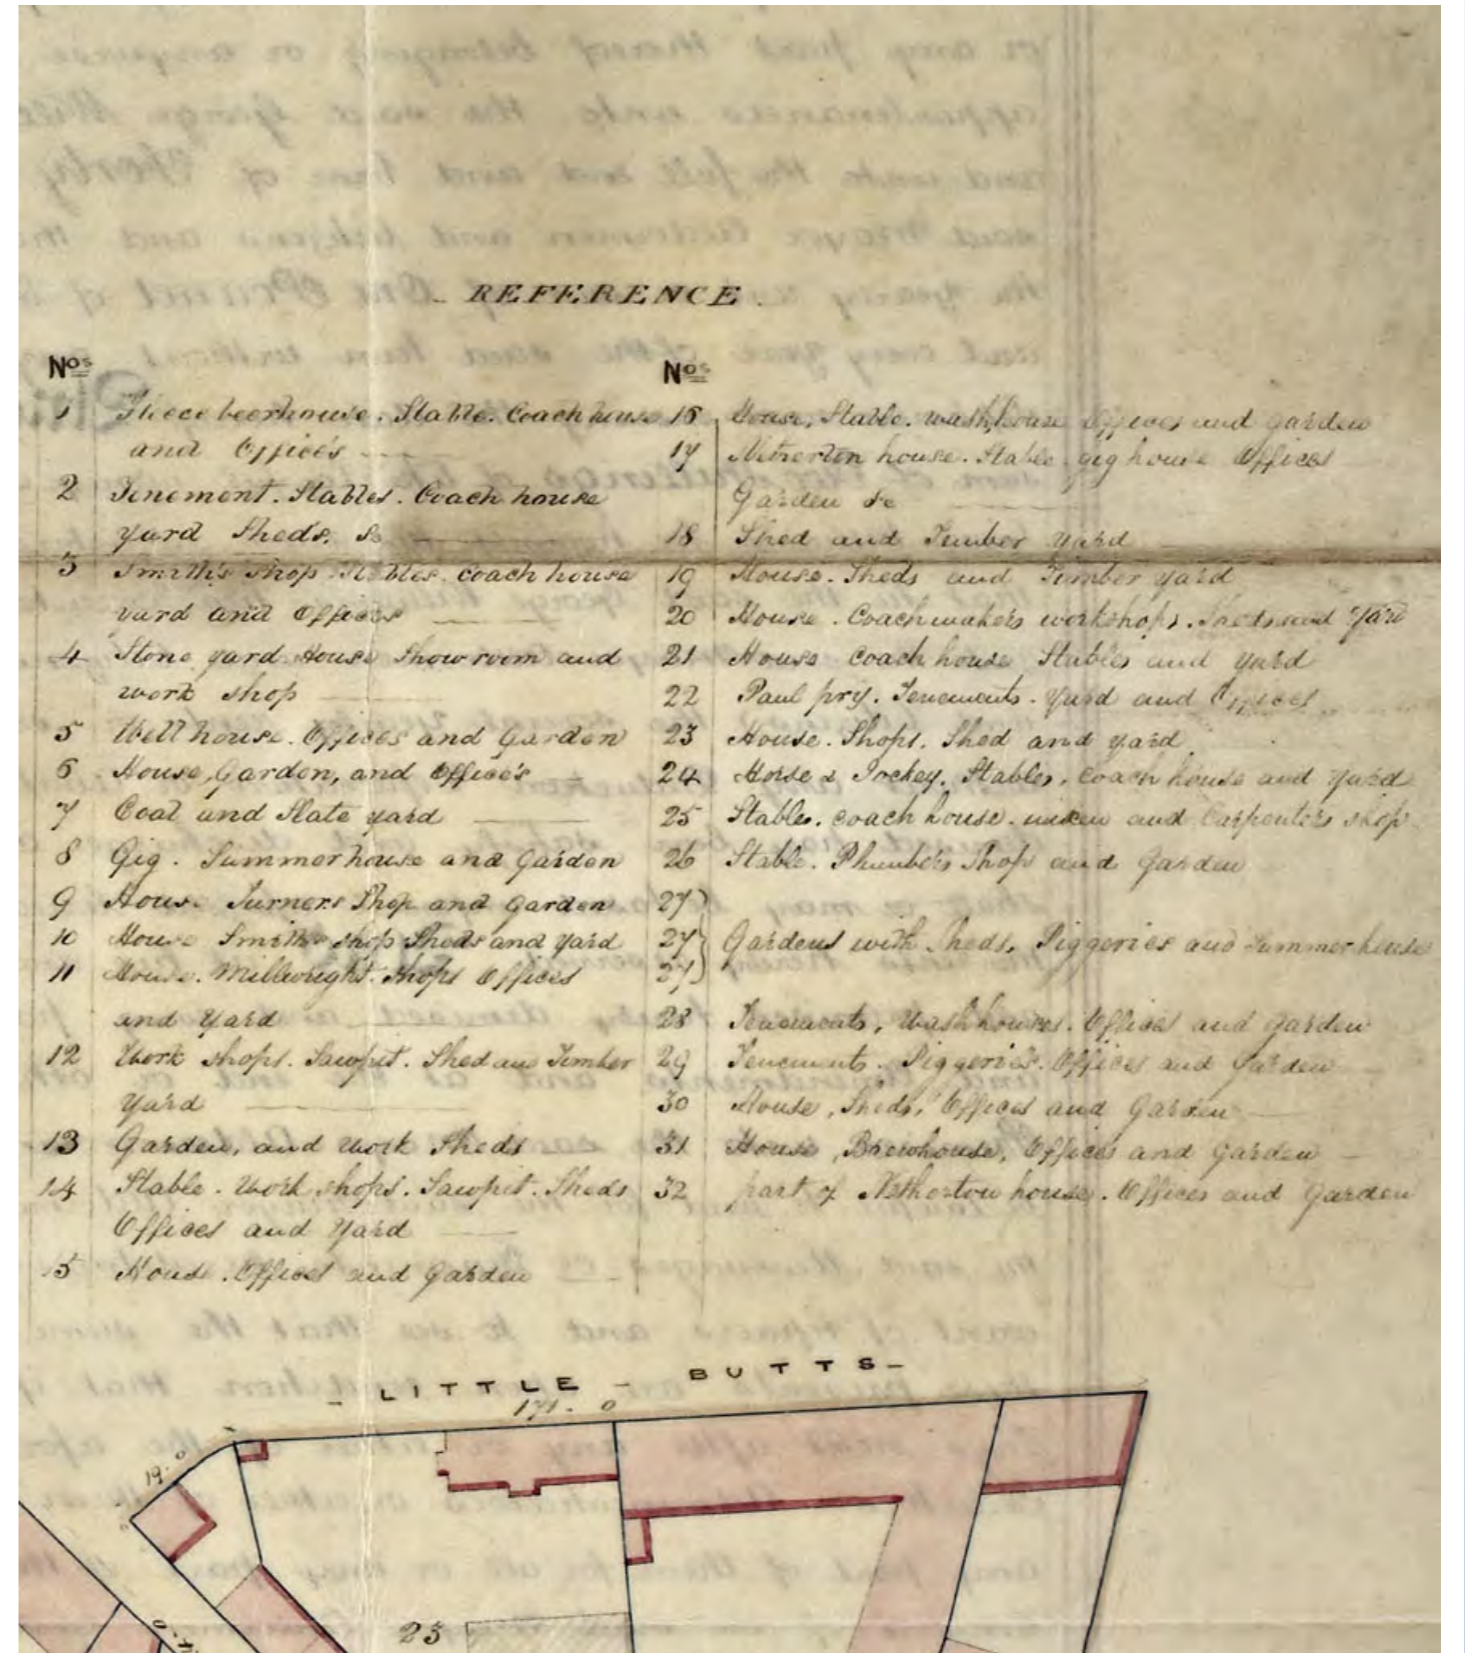 REFERENCE.
Nos
1 Fleece beerhouse. Stable. Coach house
and Offices
2 Tenement. Stables. Coach house
yard Sheds. &c
3 Smith's shop Stables. coach house
yard and Offices
4 Stone yard House Show room and
work shop
5 Well house. Offices and Garden
6 House, Garden, and Office's
7 Coal and Slate yard
8 Gig. Summerhouse and Garden
9 House Turners Shop and Garden
10 House Smiths shop Sheds and yard
11 House. Millwright. shops Offices
and Yard
12 Work shops. Sawpit. Shed and Timber
Yard
13 Garden, and work Sheds
14 Stable. Work shops. Sawpit. Sheds
Offices and Yard
15 House. Offices and Garden
Nos
16 House, Stable. washhouse Offices and garden
17 Netherton house. Stable. gig house Offices
Garden &c
18 Shed and Timber Yard
19 House. Sheds and Timber yard
20 House. Coachmakers workshops. Sheds and Yard
21 House coach house Stables and yard
22 Paul pry. Tenements. Yard and Offices
23 House. Shops. Shed and yard
24 Horse & Jockey. Stables. Coach house and Yard
25 Stables. coach house. mixen and Carpenters shop
26 Stable. Plumbers Shop and Garden
27
27 Gardens with Sheds. Piggeries and Summer house
27
28 Tenements, Washhouses. Offices and garden
29 Tenements. Piggeries. Offices and Garden
30 House, Sheds, Offices and Garden
31 House, Brewhouse, Offices and Garden
32 part of Netherton house. Offices and Garden
- LITTLE - BUTTS -
171. 0
19. 0
25